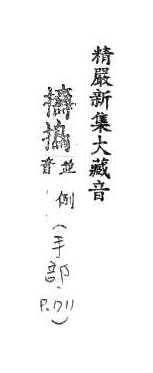 精嚴新集大藏音
並音例(手部, P.711)